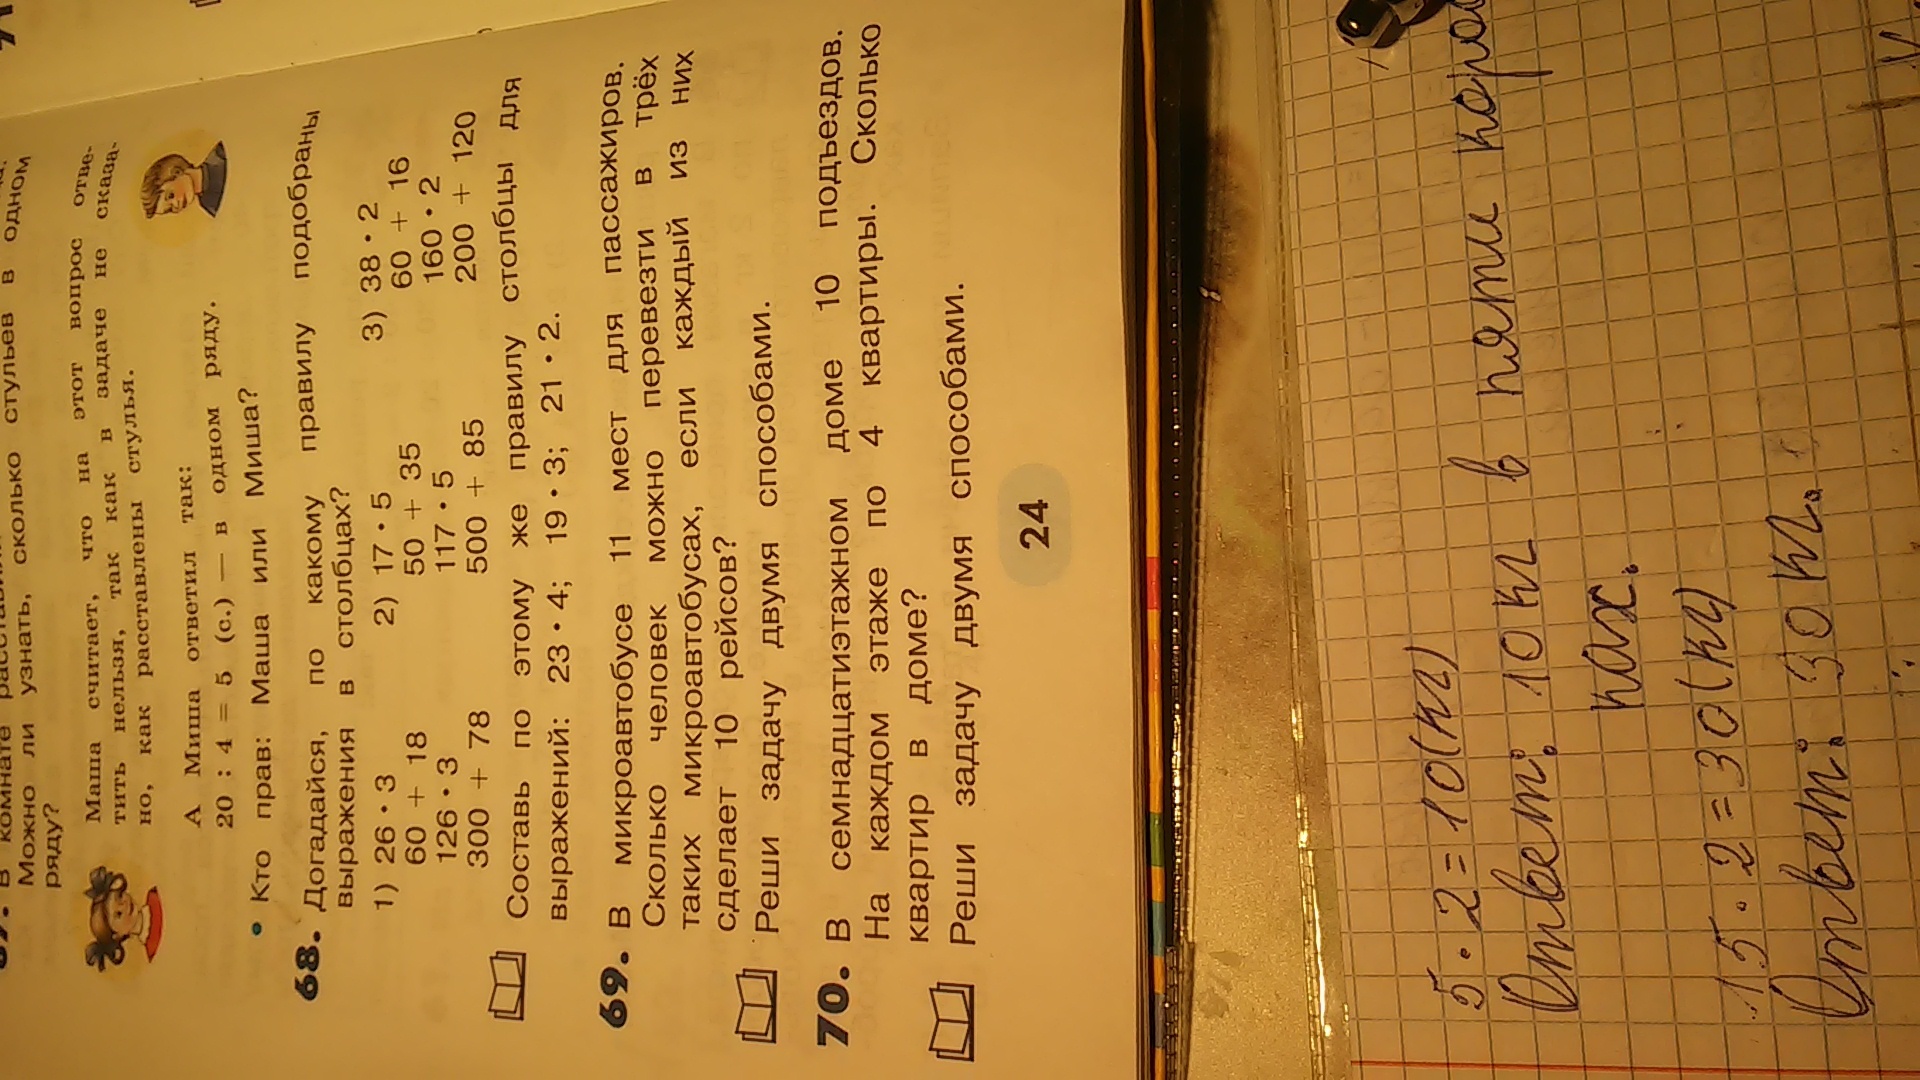 В комнате
Можно ли узнать, сколько стульев в одном
ряду?
Маша считает, что на этот вопрос отве-
тить нельзя, так как в задаче не сказа-
но, как расставлены стулья.
А Миша ответил так:
20 : 4 = 5 (с.) — в одном ряду.
• Кто прав: Маша или Миша?
68. Догадайся, по какому правилу подобраны
выражения в столбцах?
1) 26 • 3 2) 17 • 5 3) 38 • 2
60 + 18 50 + 35 60 + 16
126 • 3 117 • 5 160 • 2
300 + 78 500 + 85 200 + 120
Составь по этому же правилу столбцы для
выражений: 23 • 4; 19 • 3; 21 • 2.
69. В микроавтобусе 11 мест для пассажиров.
Сколько человек можно перевезти в трёх
таких микроавтобусах, если каждый из них
сделает 10 рейсов?
Реши задачу двумя способами.
70. В семнадцатиэтажном доме 10 подъездов.
На каждом этаже по 4 квартиры. Сколько
квартир в доме?
Реши задачу двумя способами.
24
5 • 2 = 10 (кг)
Ответ: 10 кг в пяти короб
ках.
15 • 2 = 30 (кг)
Ответ: 30 кг.